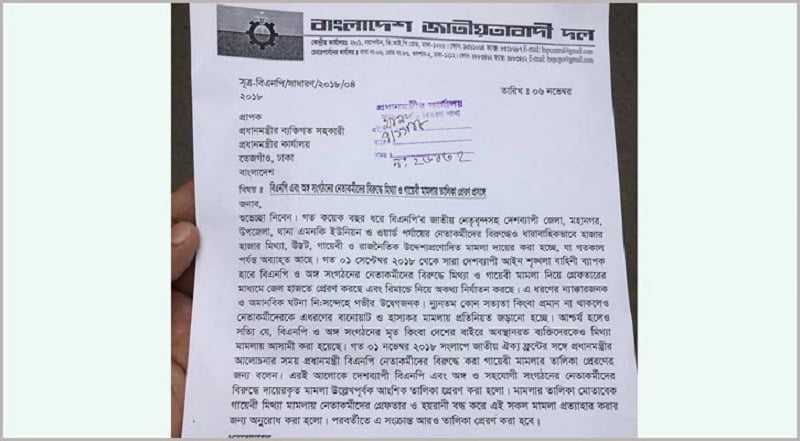 বাংলাদেশ জাতীয়তাবাদী দল
কেন্দ্রীয় কার্যালয়ঃ ২৮/১, নয়াপল্টন, ভি.আই.পি রোড, ঢাকা-১০০০
সূত্র-বিএনপি/সাধারণ/২০১৮/০৪
তারিখ ঃ ০৬ নভেম্বর
২০১৮
প্রধানমন্ত্রীর কার্যালয়
প্রাপক
প্রধানমন্ত্রীর ব্যক্তিগত সহকারী
প্রধানমন্ত্রীর কার্যালয়
তেজগাঁও, ঢাকা
বাংলাদেশ
বিষয় ঃ বিএনপি এবং অঙ্গ সংগঠনের নেতাকর্মীদের বিরুদ্ধে মিথ্যা ও গায়েবী মামলার তালিকা প্রেরণ প্রসঙ্গে
জনাব,
শুভেচ্ছা নিবেন। গত কয়েক বছর ধরে বিএনপি'র জাতীয় নেতৃবৃন্দসহ দেশব্যাপী জেলা, মহানগর,
উপজেলা, থানা এমনকি ইউনিয়ন ও ওয়ার্ড পর্যায়ের নেতাকর্মীদের বিরুদ্ধেও ধারাবাহিকভাবে হাজার
হাজার মিথ্যা, উদ্ভট, গায়েবী ও রাজনৈতিক উদ্দেশ্যপ্রণোদিত মামলা দায়ের করা হচ্ছে, যা গতকাল
পর্যন্ত অব্যাহত আছে। গত ০১ সেপ্টেম্বর ২০১৮ থেকে সারা দেশব্যাপী আইন শৃঙ্খলা বাহিনী ব্যাপক
হারে বিএনপি ও অঙ্গ সংগঠনের নেতাকর্মীদের বিরুদ্ধে মিথ্যা ও গায়েবী মামলা দিয়ে গ্রেফতারের
মাধ্যমে জেল হাজতে প্রেরণ করছে এবং রিমান্ডে নিয়ে অকথ্য নির্যাতন করছে। এ ধরণের ন্যাক্কারজনক
ও অমানবিক ঘটনা নিঃসন্দেহে গভীর উদ্বেগজনক। ন্যুনতম কোন সত্যতা কিংবা প্রমান না থাকলেও
নেতাকর্মীদেরকে এধরণের বানোয়াট ও হাস্যকর মামলায় প্রতিনিয়ত জড়ানো হচ্ছে। আশ্চর্য হলেও
সত্যি যে, বিএনপি ও অঙ্গ সংগঠনের মৃত কিংবা দেশের বাইরে অবস্থানরত ব্যক্তিদেরকেও মিথ্যা
মামলায় আসামী করা হয়েছে। গত ০১ নভেম্বর ২০১৮ সংলাপে জাতীয় ঐক্য ফ্রন্টের সঙ্গে প্রধানমন্ত্রীর
আলোচনার সময় প্রধানমন্ত্রী বিএনপি নেতাকর্মীদের বিরুদ্ধে করা গায়েবী মামলার তালিকা প্রেরণের
জন্য বলেন। এরই আলোকে দেশব্যাপী বিএনপি এবং অঙ্গ ও সহযোগী সংগঠনের নেতাকর্মীদের
বিরুদ্ধে দায়েরকৃত মামলা উল্লেখপূর্বক আংশিক তালিকা প্রেরণ করা হলো। মামলার তালিকা মোতাবেক
গায়েবী মিথ্যা মামলায় নেতাকর্মীদের গ্রেফতার ও হয়রানী বন্ধ করে এই সকল মামলা প্রত্যাহার করার
জন্য অনুরোধ করা হলো। পরবর্তীতে এ সংক্রান্ত আরও তালিকা প্রেরণ করা হবে।